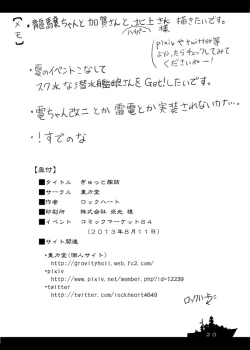 【メモ】
・龍驤ちゃんと加賀さんと北上さん描きたいです。
様
(pixivやtwitter等
よかったらチェックしてみて
くださいねー!
・夏のイベントこなして
スク水な潜水艦娘さんをGet!したいです。
・電ちゃん改二とか雷電とか実装されないカナ…。
・!すでのな
【奥付】
■タイトル ぎゅっと艦詰
■サークル 重力堂
■作者 ロックハート
■印刷所 株式会社 栄光 様
■イベント コミックマーケット84
(2013年8月11日)
■サイト関連
・重力堂(個人サイト)
http://gravityholl.web.fc2.com/
・pixiv
http://www.pixiv.net/member.php?id=12239
・twitter
http://twitter.com/lockheart4649
ロックハート
20